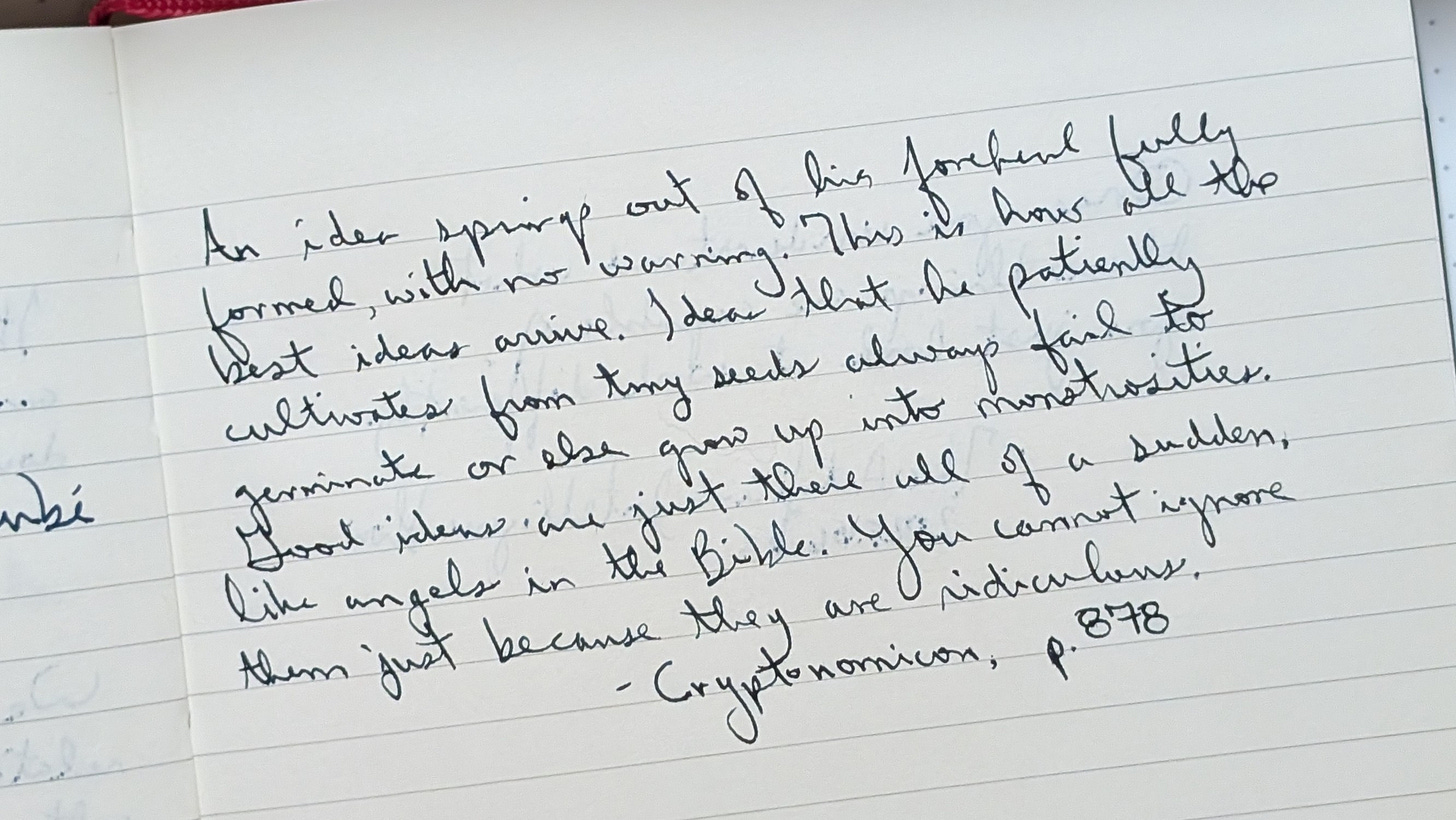 An idea springs out of his forehead fully
formed, with no warning. This is how all the
best ideas arrive. Ideas that he patiently
cultivates from tiny seeds always fail to
germinate or else grow up into monstrosities.
Good ideas are just there all of a sudden,
like angels in the Bible. You cannot ignore
them just because they are ridiculous.
- Cryptonomicon, p. 878